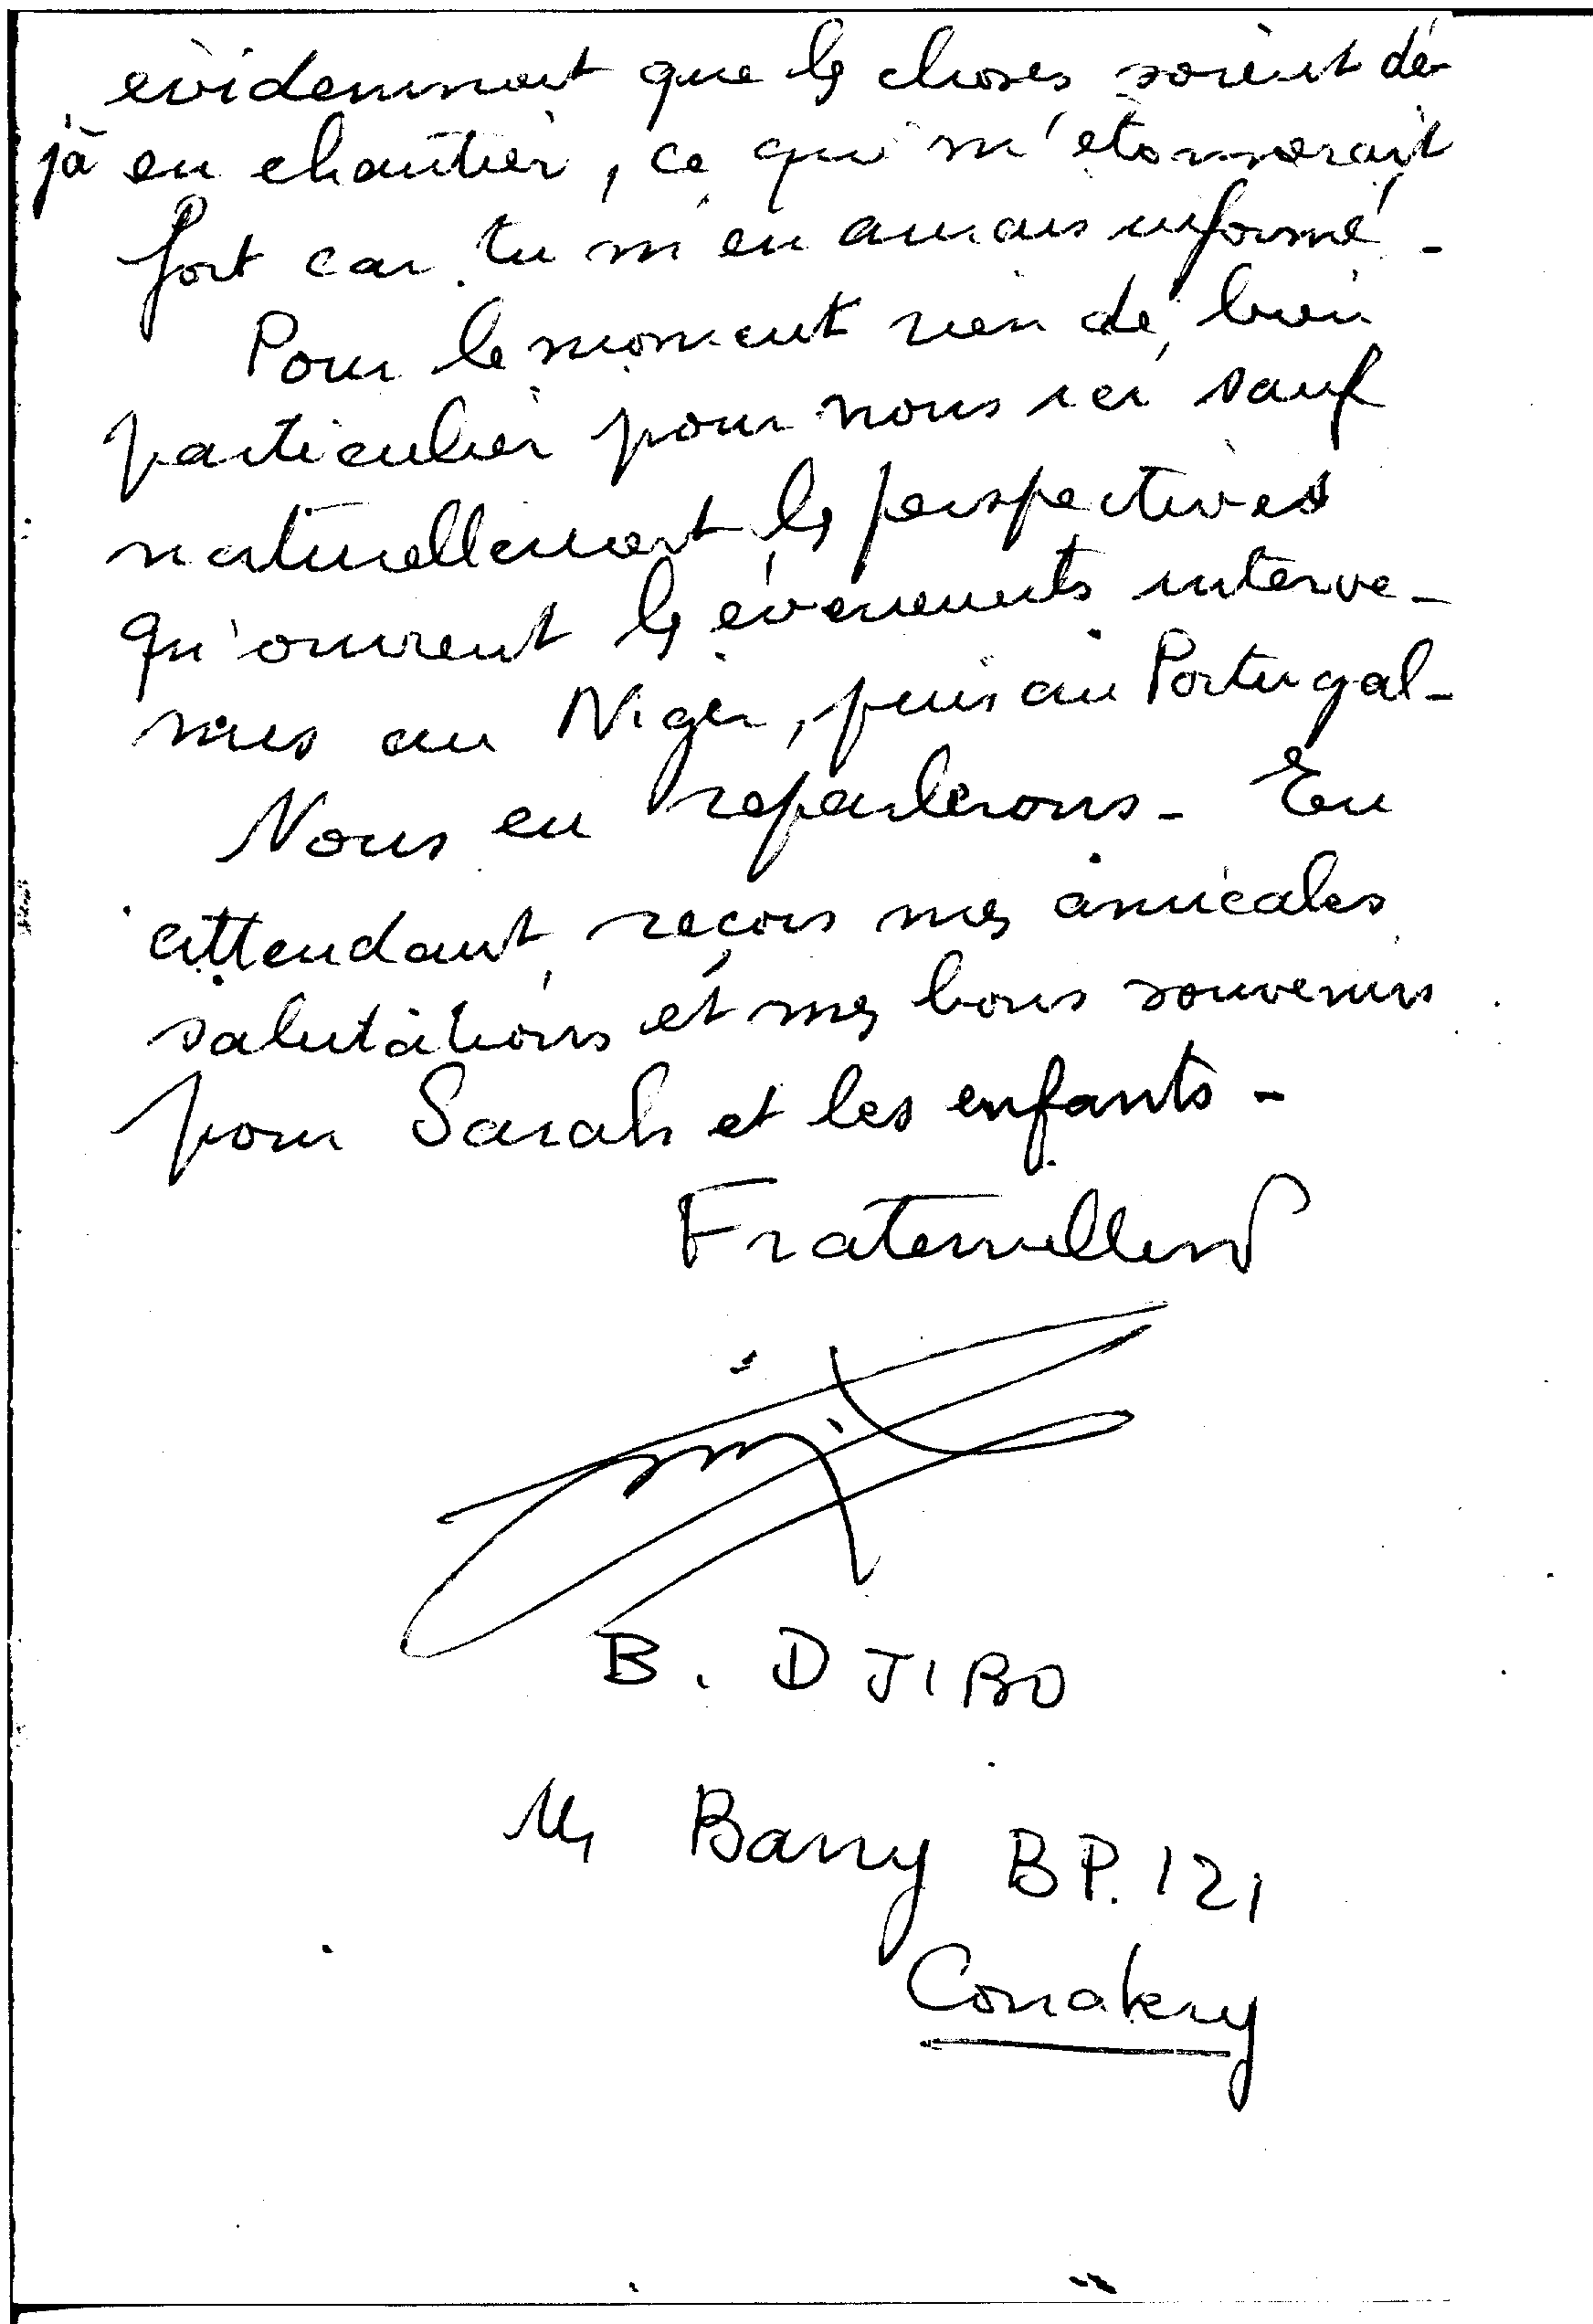 evidemment que les choses soient dé-
jà en chantier, ce qui m'étonnerait
fort car tu m'en aurais informé -
Pour le moment rien de bien
particulier pour nous ici sauf
naturellement les perspectives
qu'ouvrent les évènements interve-
nus au Niger, puis au Portugal -
Nous en reparlerons - En
attendant, reçois mes amicales
salutations et mes bons souvenirs
pour Sarah et les enfants -
Fraternellemt
B. DJIBO
Barry BP. 121
Conakry